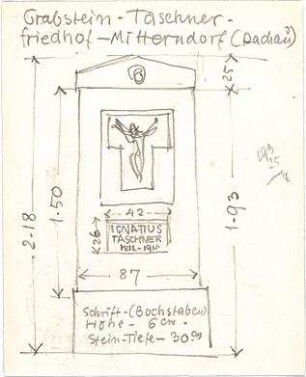 Grabstein - Taschner -
friedhof - Mitterndorf (Dachau)
25
1-50
2-18
1-93
42
26
IGNATIUS
TASCHNER
87
Schrift-(Bochstaben)
Höhe - 6 cm -
Stein-Tiefe - 30 cm